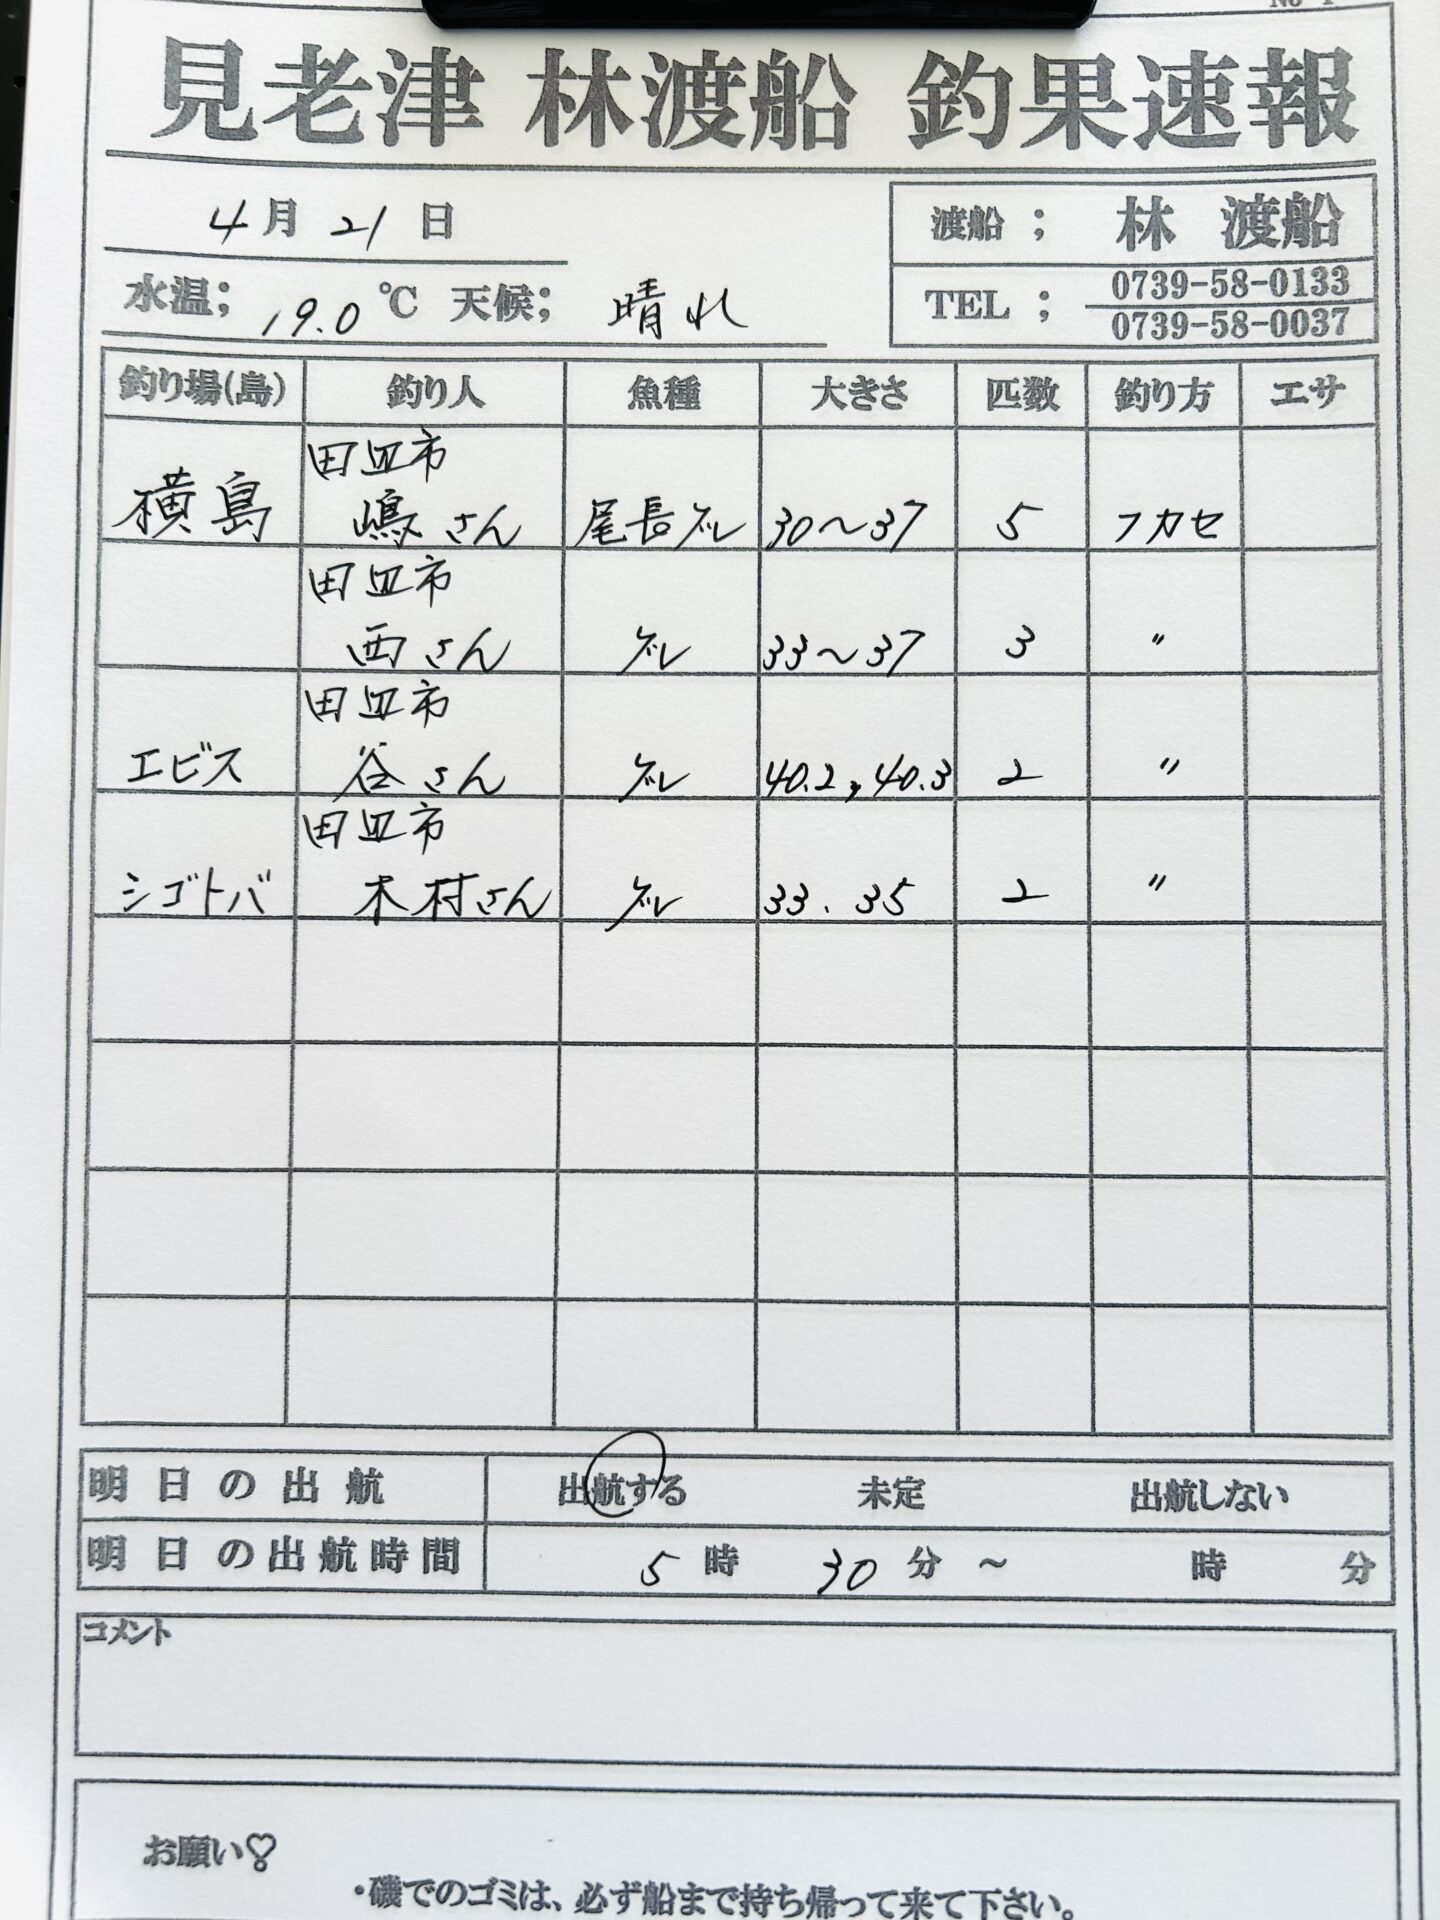 見老津 林渡船 釣果速報
4月21日
渡船 ; 林 渡船
水温; 19.0 ℃ 天候; 晴れ
TEL ; 0739-58-0133
0739-58-0037
釣り場(島) 釣り人 魚種 大きさ 匹数 釣り方 エサ
田辺市
横島 嶋さん 尾長グレ 30〜37 5 フカセ
田辺市
西さん グレ 33〜37 3 〃
田辺市
エビス 谷さん グレ 40.2, 40.3 2 〃
田辺市
シゴトバ 木村さん グレ 33. 35 2 〃
明日の出航 出航する 未定 出航しない
明日の出航時間 5時 30分 ～ 時 分
コメント
お願い♡
・磯でのゴミは、必ず船まで持ち帰って来て下さい。